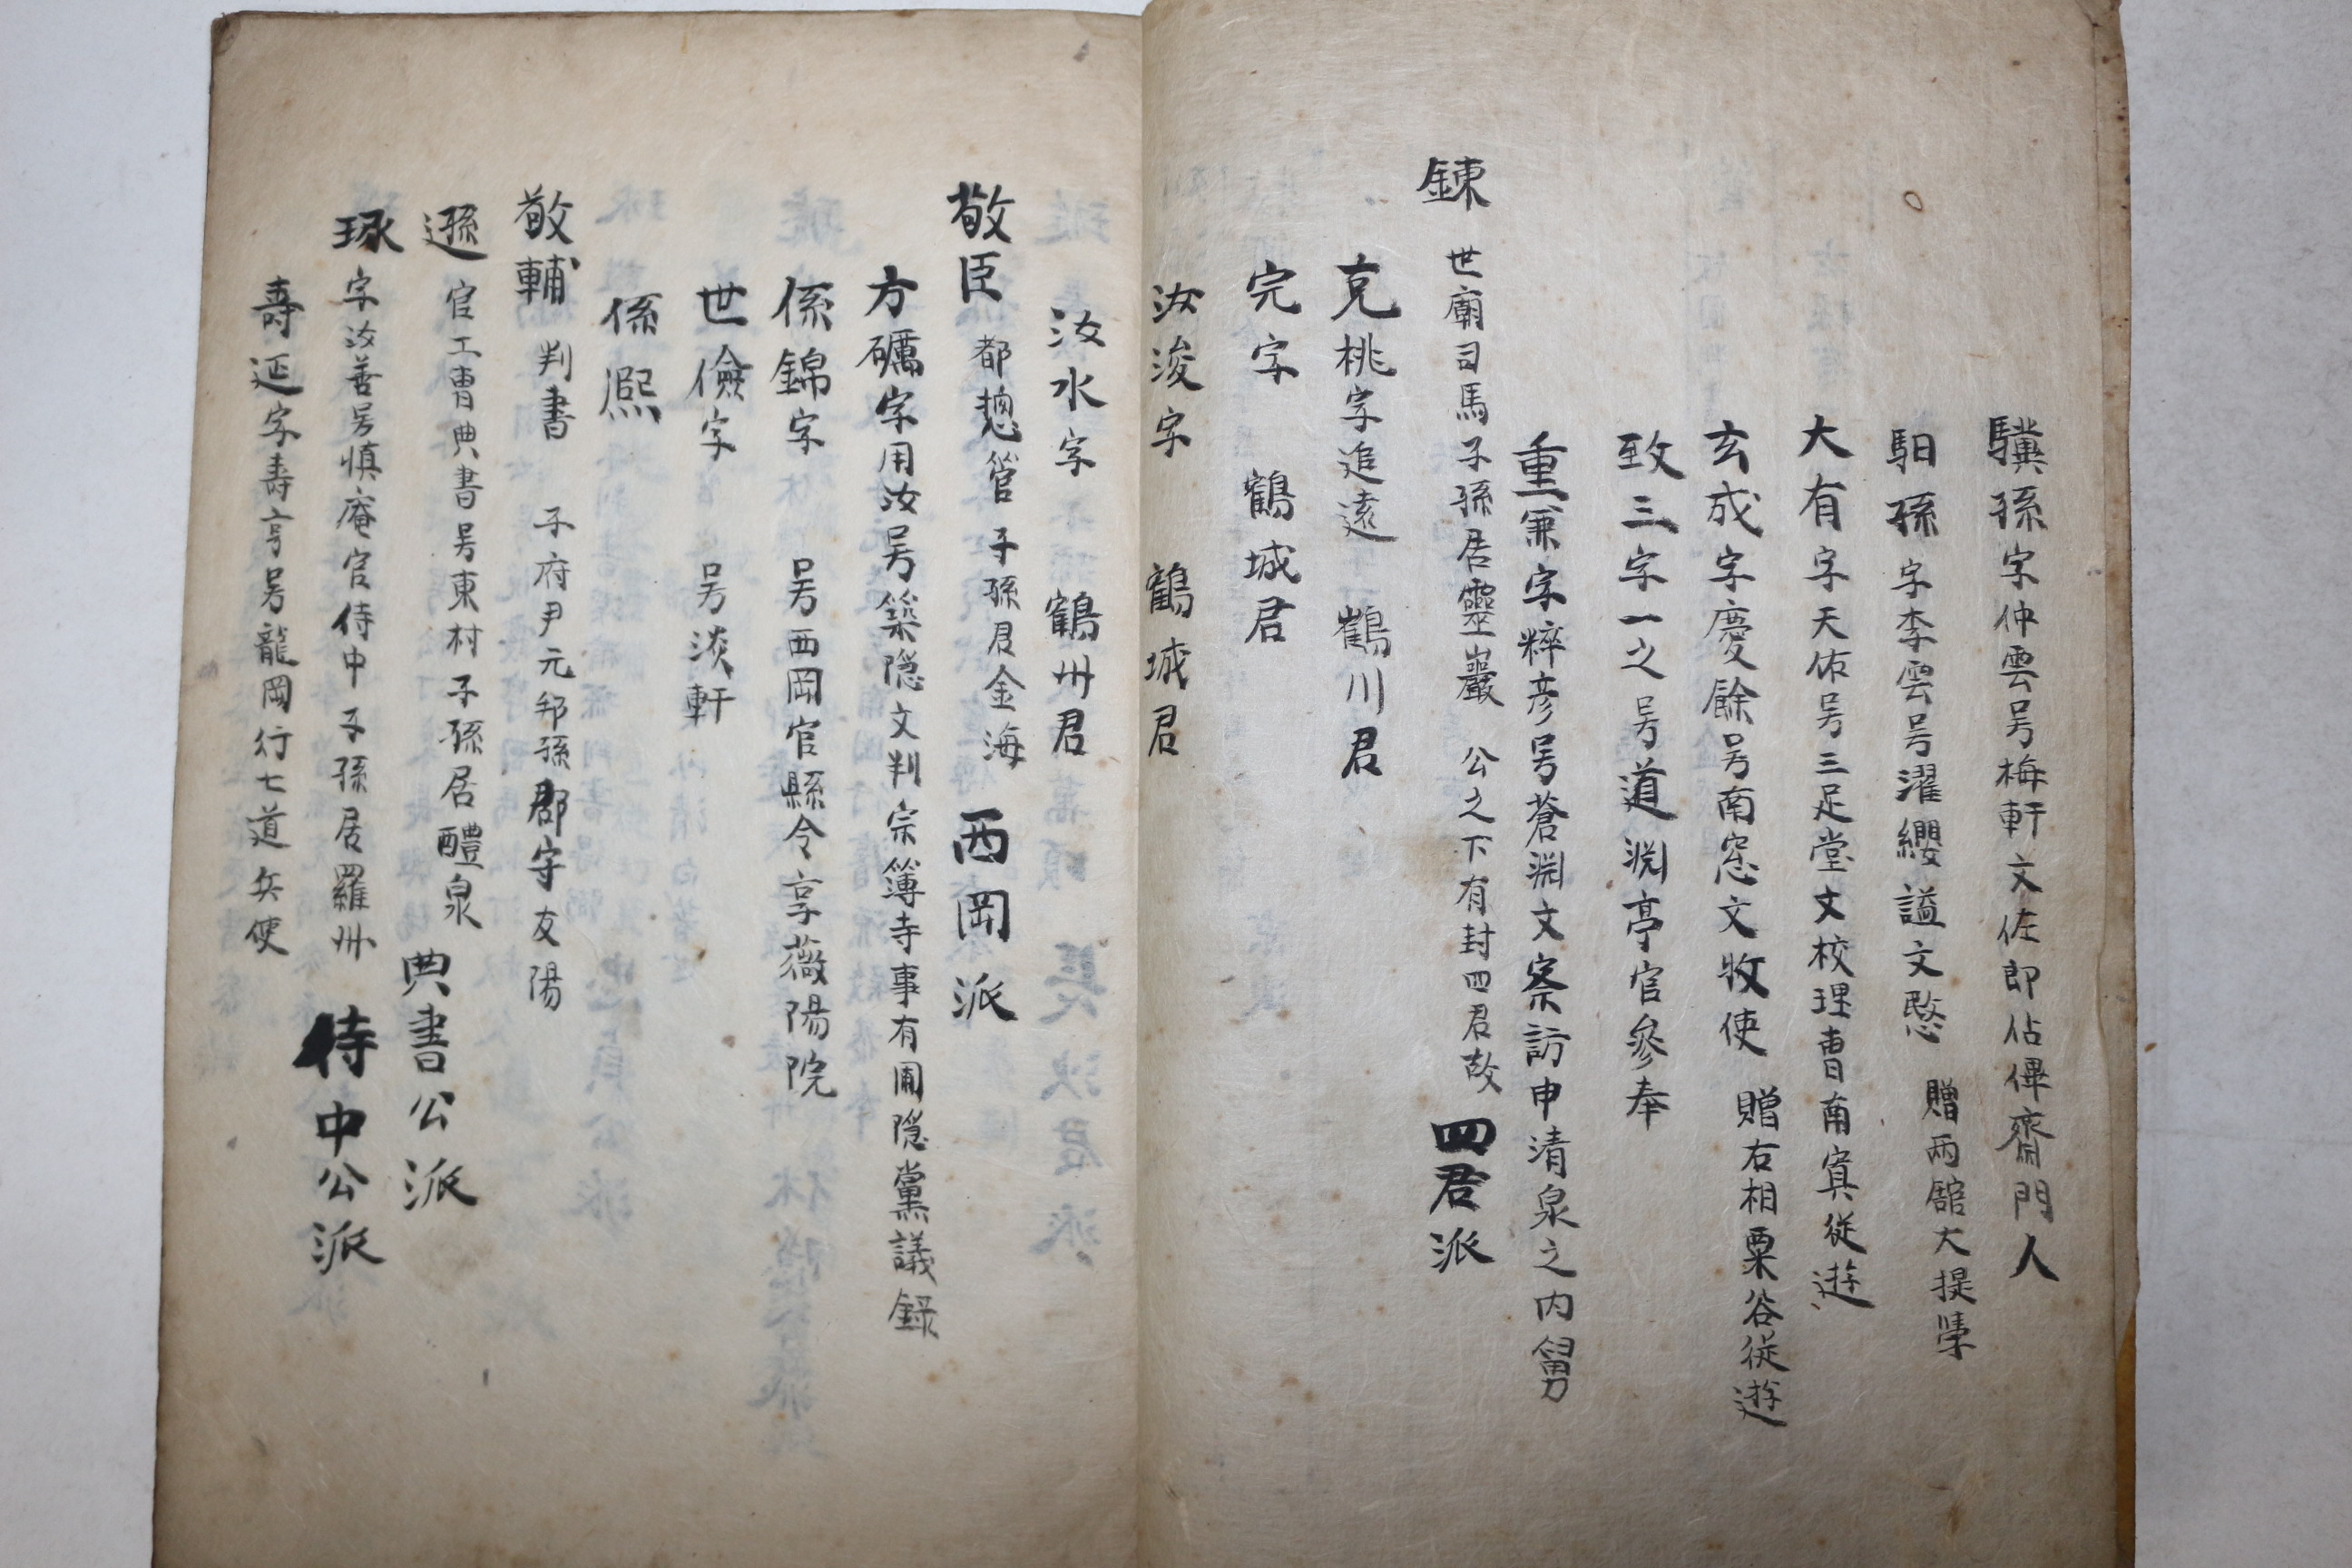 驥孫字仲雲号梅軒文佐郎佔俾齋門人
馹孫字季雲号濯纓謚文愍 贈兩舘大提學
大有字天佑号三足堂文校理曺南寘從遊
玄成字慶餘号南窓文牧使 贈右相栗谷從遊
致三字一之号道渊亭官參奉
重兼字粹彦号蒼渊文察訪申清泉之内舅
鍊 世廟司馬子孫居靈巖 公之下有封四君故 四君派
克桃字追遠 鶴川君
完字 鶴城君
汝浚字 鶴城君
汝水字 鶴州君
敬臣 都摠管子孫居金海 西岡派
方礪字用汝号築隐文判宗簿寺事有圃隐黨議録
係錦字 号西岡官縣令享薇陽院
世儉字 号淡軒
係熙
敬輔 判書 子府尹元邦孫郡守友陽
遜 官工曺典書号東村子孫居醴泉 典書公派
琢字汝善号慎庵官侍中子孫居羅州 侍中公派
壽延字壽亨号龍岡行七道兵使